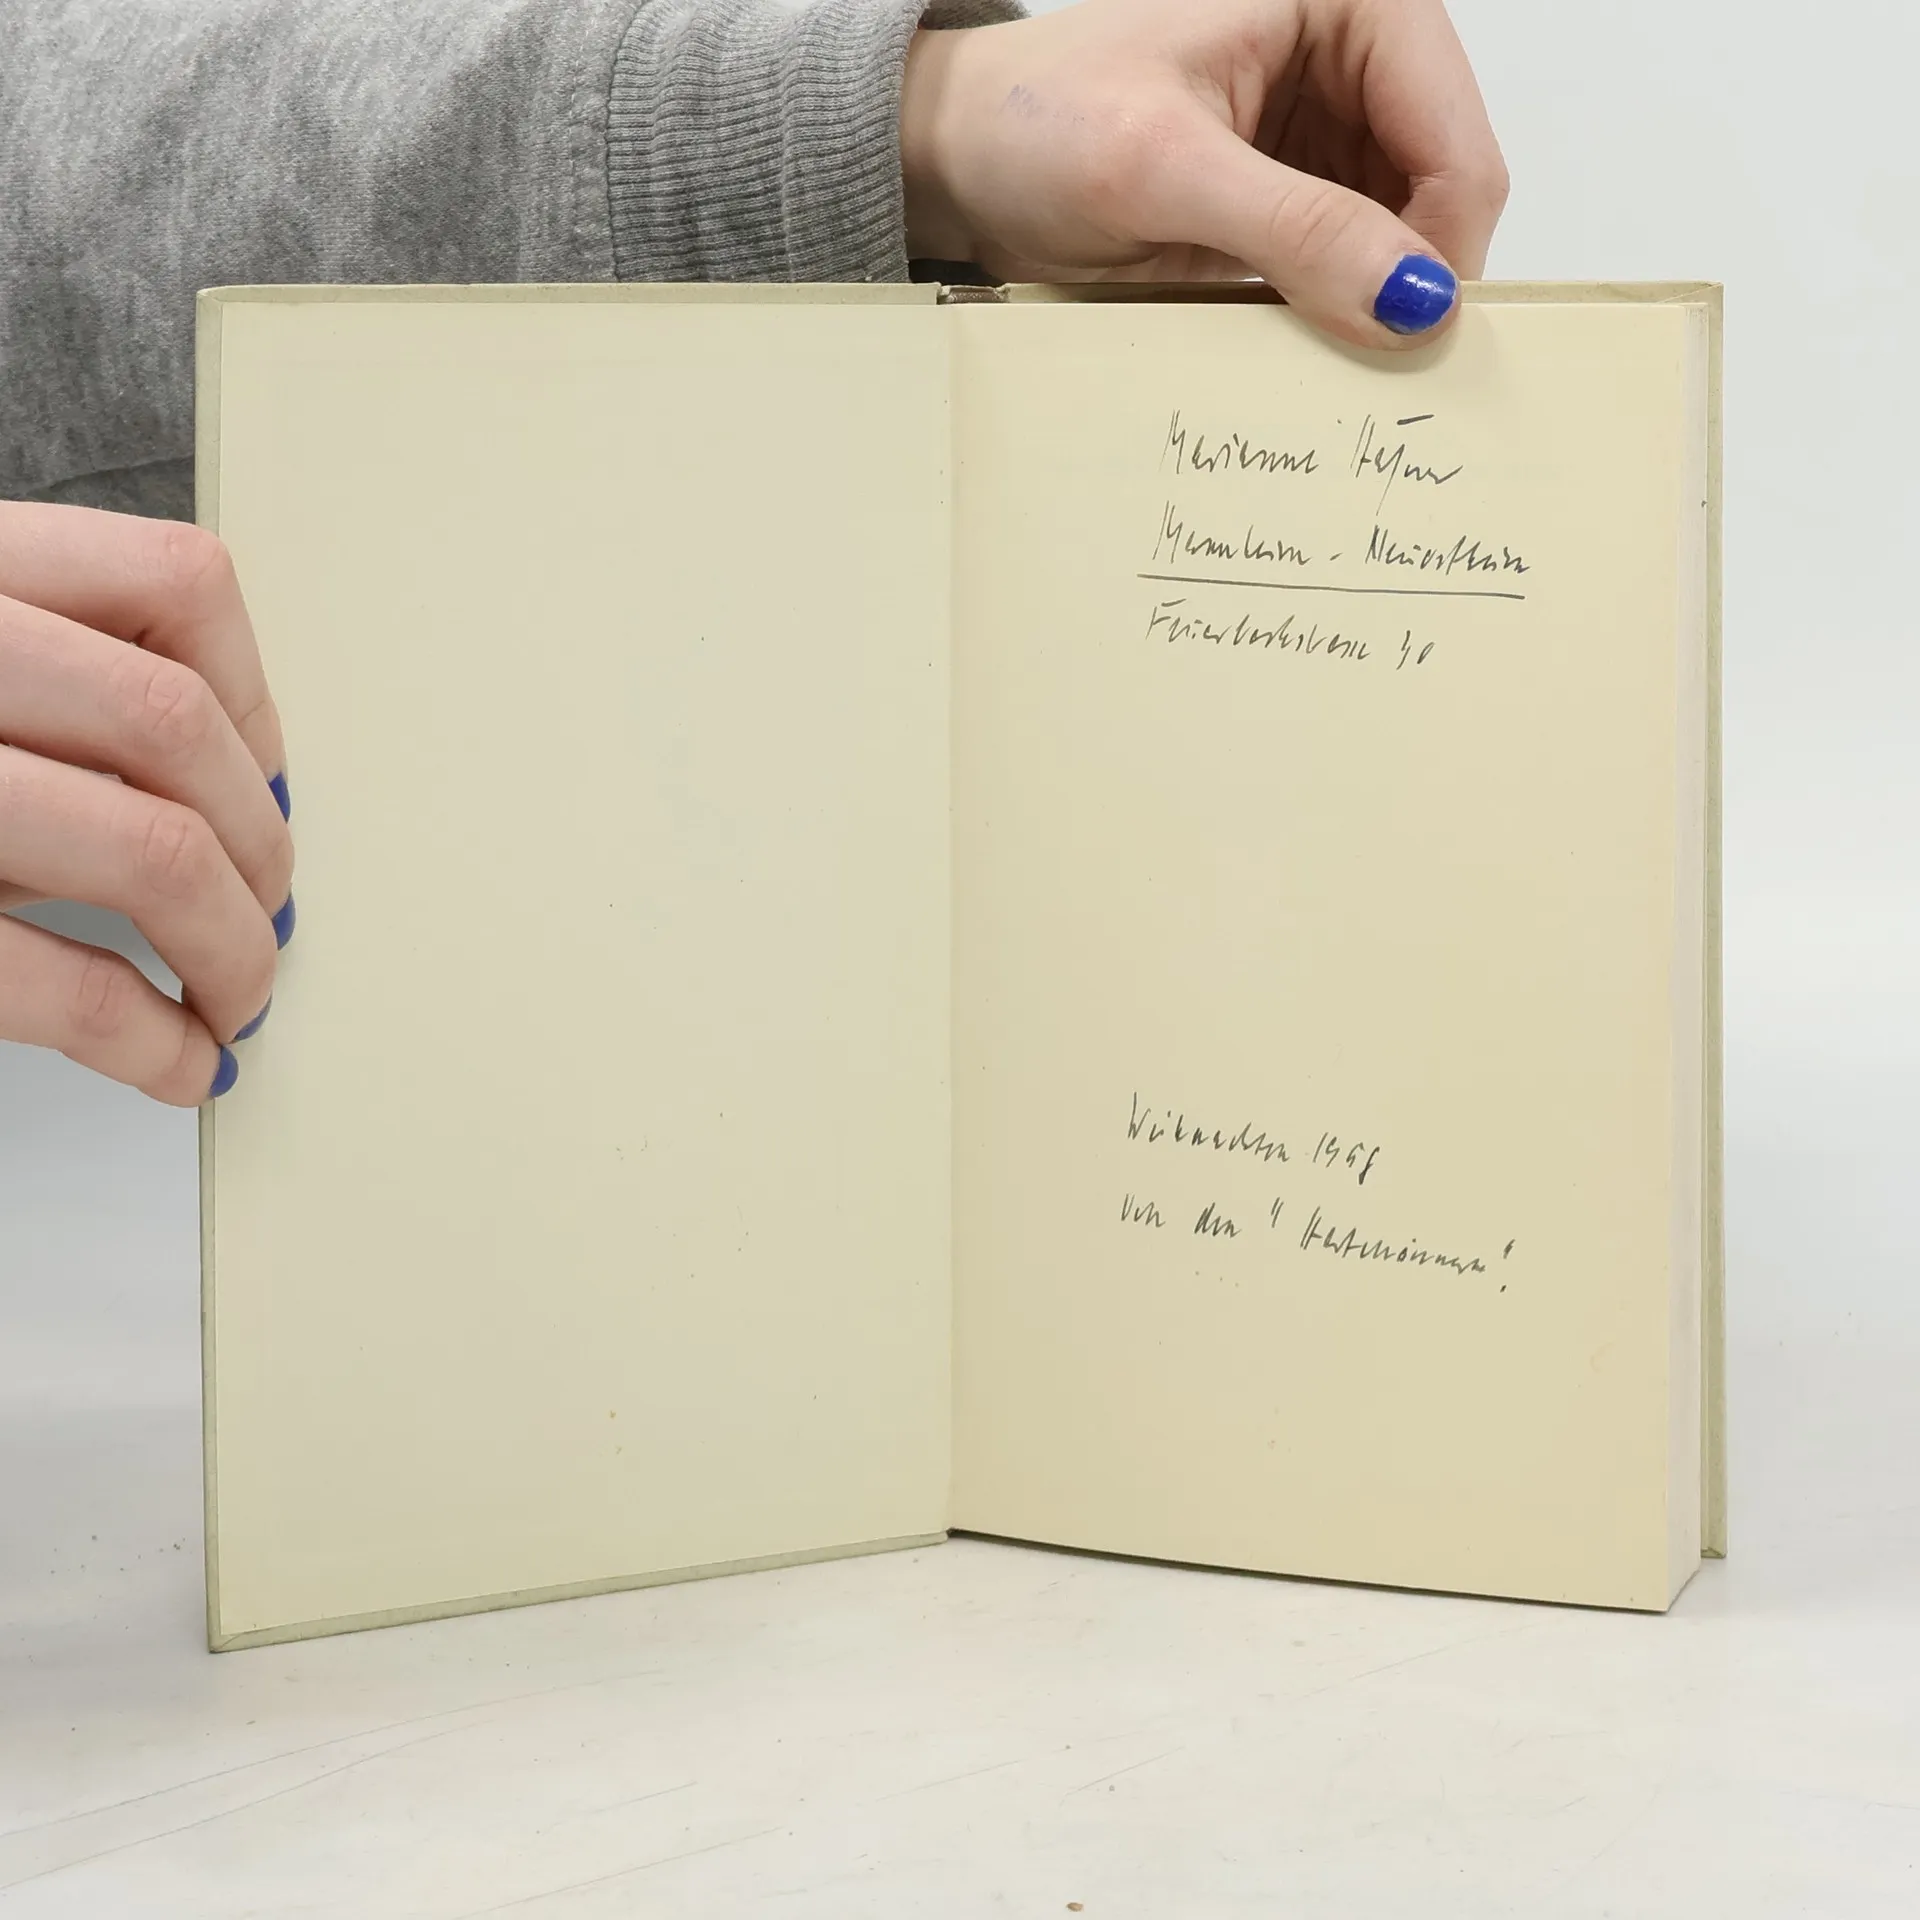 Marianne Hafner
Mannheim - Neuostheim
Feuerbachstrasse 30
Weihnachten 1958
von den "